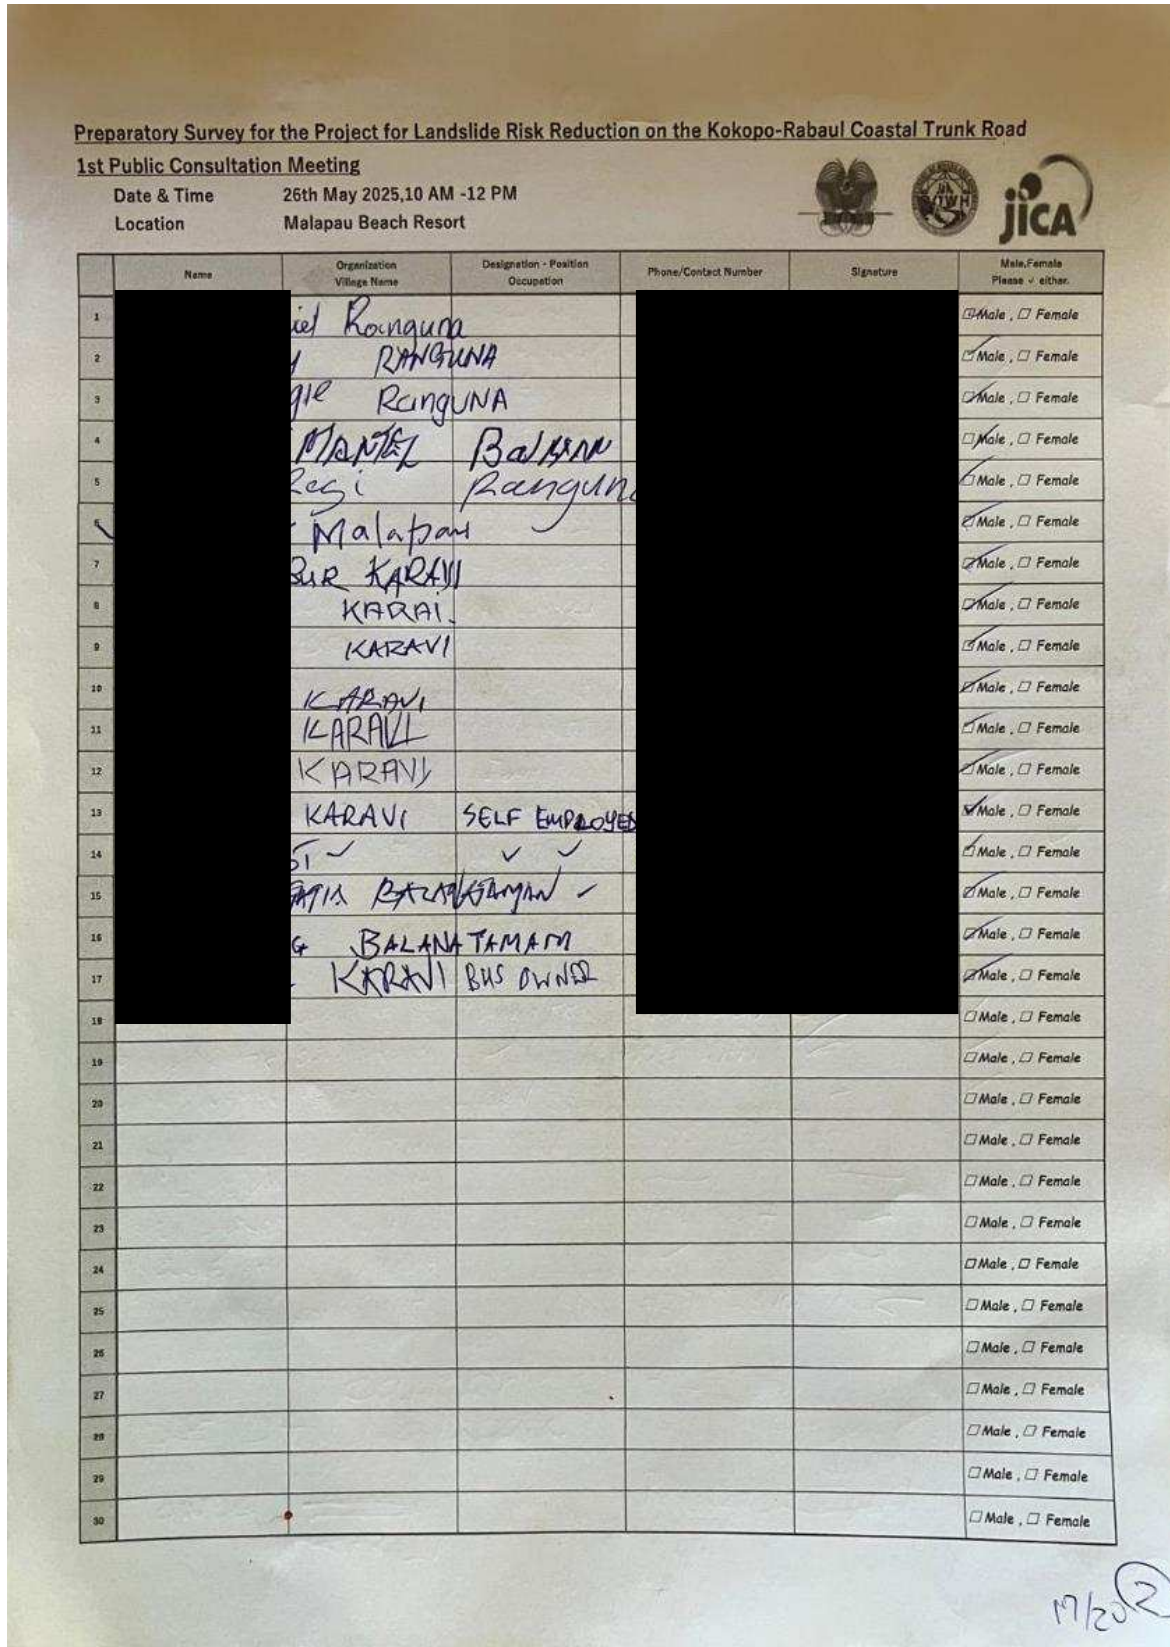 Preparatory Survey for the Project for Landslide Risk Reduction on the Kokopo-Rabaul Coastal Trunk Road
1st Public Consultation Meeting
Date & Time 26th May 2025,10 AM -12 PM
Location Malapau Beach Resort
JICA
Name Organization Village Name Designation - Position Occupation Phone/Contact Number Signature Male,Female Please ✓ either.
1 Ranguna Male , Female
2 RANGUNA Male , Female
3 RangUNA Male , Female
4 Male , Female
5 Regi Ranguna Male , Female
6 Malapau Male , Female
7 BUR KARAVI Male , Female
8 KARAI. Male , Female
9 KARAVI Male , Female
10 KARAVI Male , Female
11 KARAVI Male , Female
12 KARAVI Male , Female
13 KARAVI SELF EMPLOYED Male , Female
14 ✓ ✓ ✓ Male , Female
15 Male , Female
16 BALANATAMAM Male , Female
17 KARAVI BUS OWNER Male , Female
18 Male , Female
19 Male , Female
20 Male , Female
21 Male , Female
22 Male , Female
23 Male , Female
24 Male , Female
25 Male , Female
26 Male , Female
27 Male , Female
28 Male , Female
29 Male , Female
30 Male , Female
17/20 2